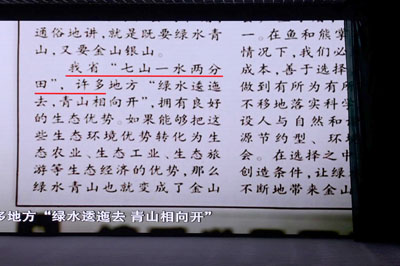 通俗地讲，就是既要绿水青
山，又要金山银山。
我省“七山一水两分
田”，许多地方“绿水逶迤
去，青山相向开”，拥有良好
的生态优势。如果能够把这
些生态环境优势转化为生
态农业、生态工业、生态旅
游等生态经济的优势，那么
绿水青山也就变成了金山
一。在鱼和熊掌
情况下，我们必
成本，善于选择
做到有所为有所
不移地落实科学
设人与自然和
源节约型、环
会。在选择之中
创造条件，让绿
不断地带来金山
多地方“绿水逶迤去 青山相向开”